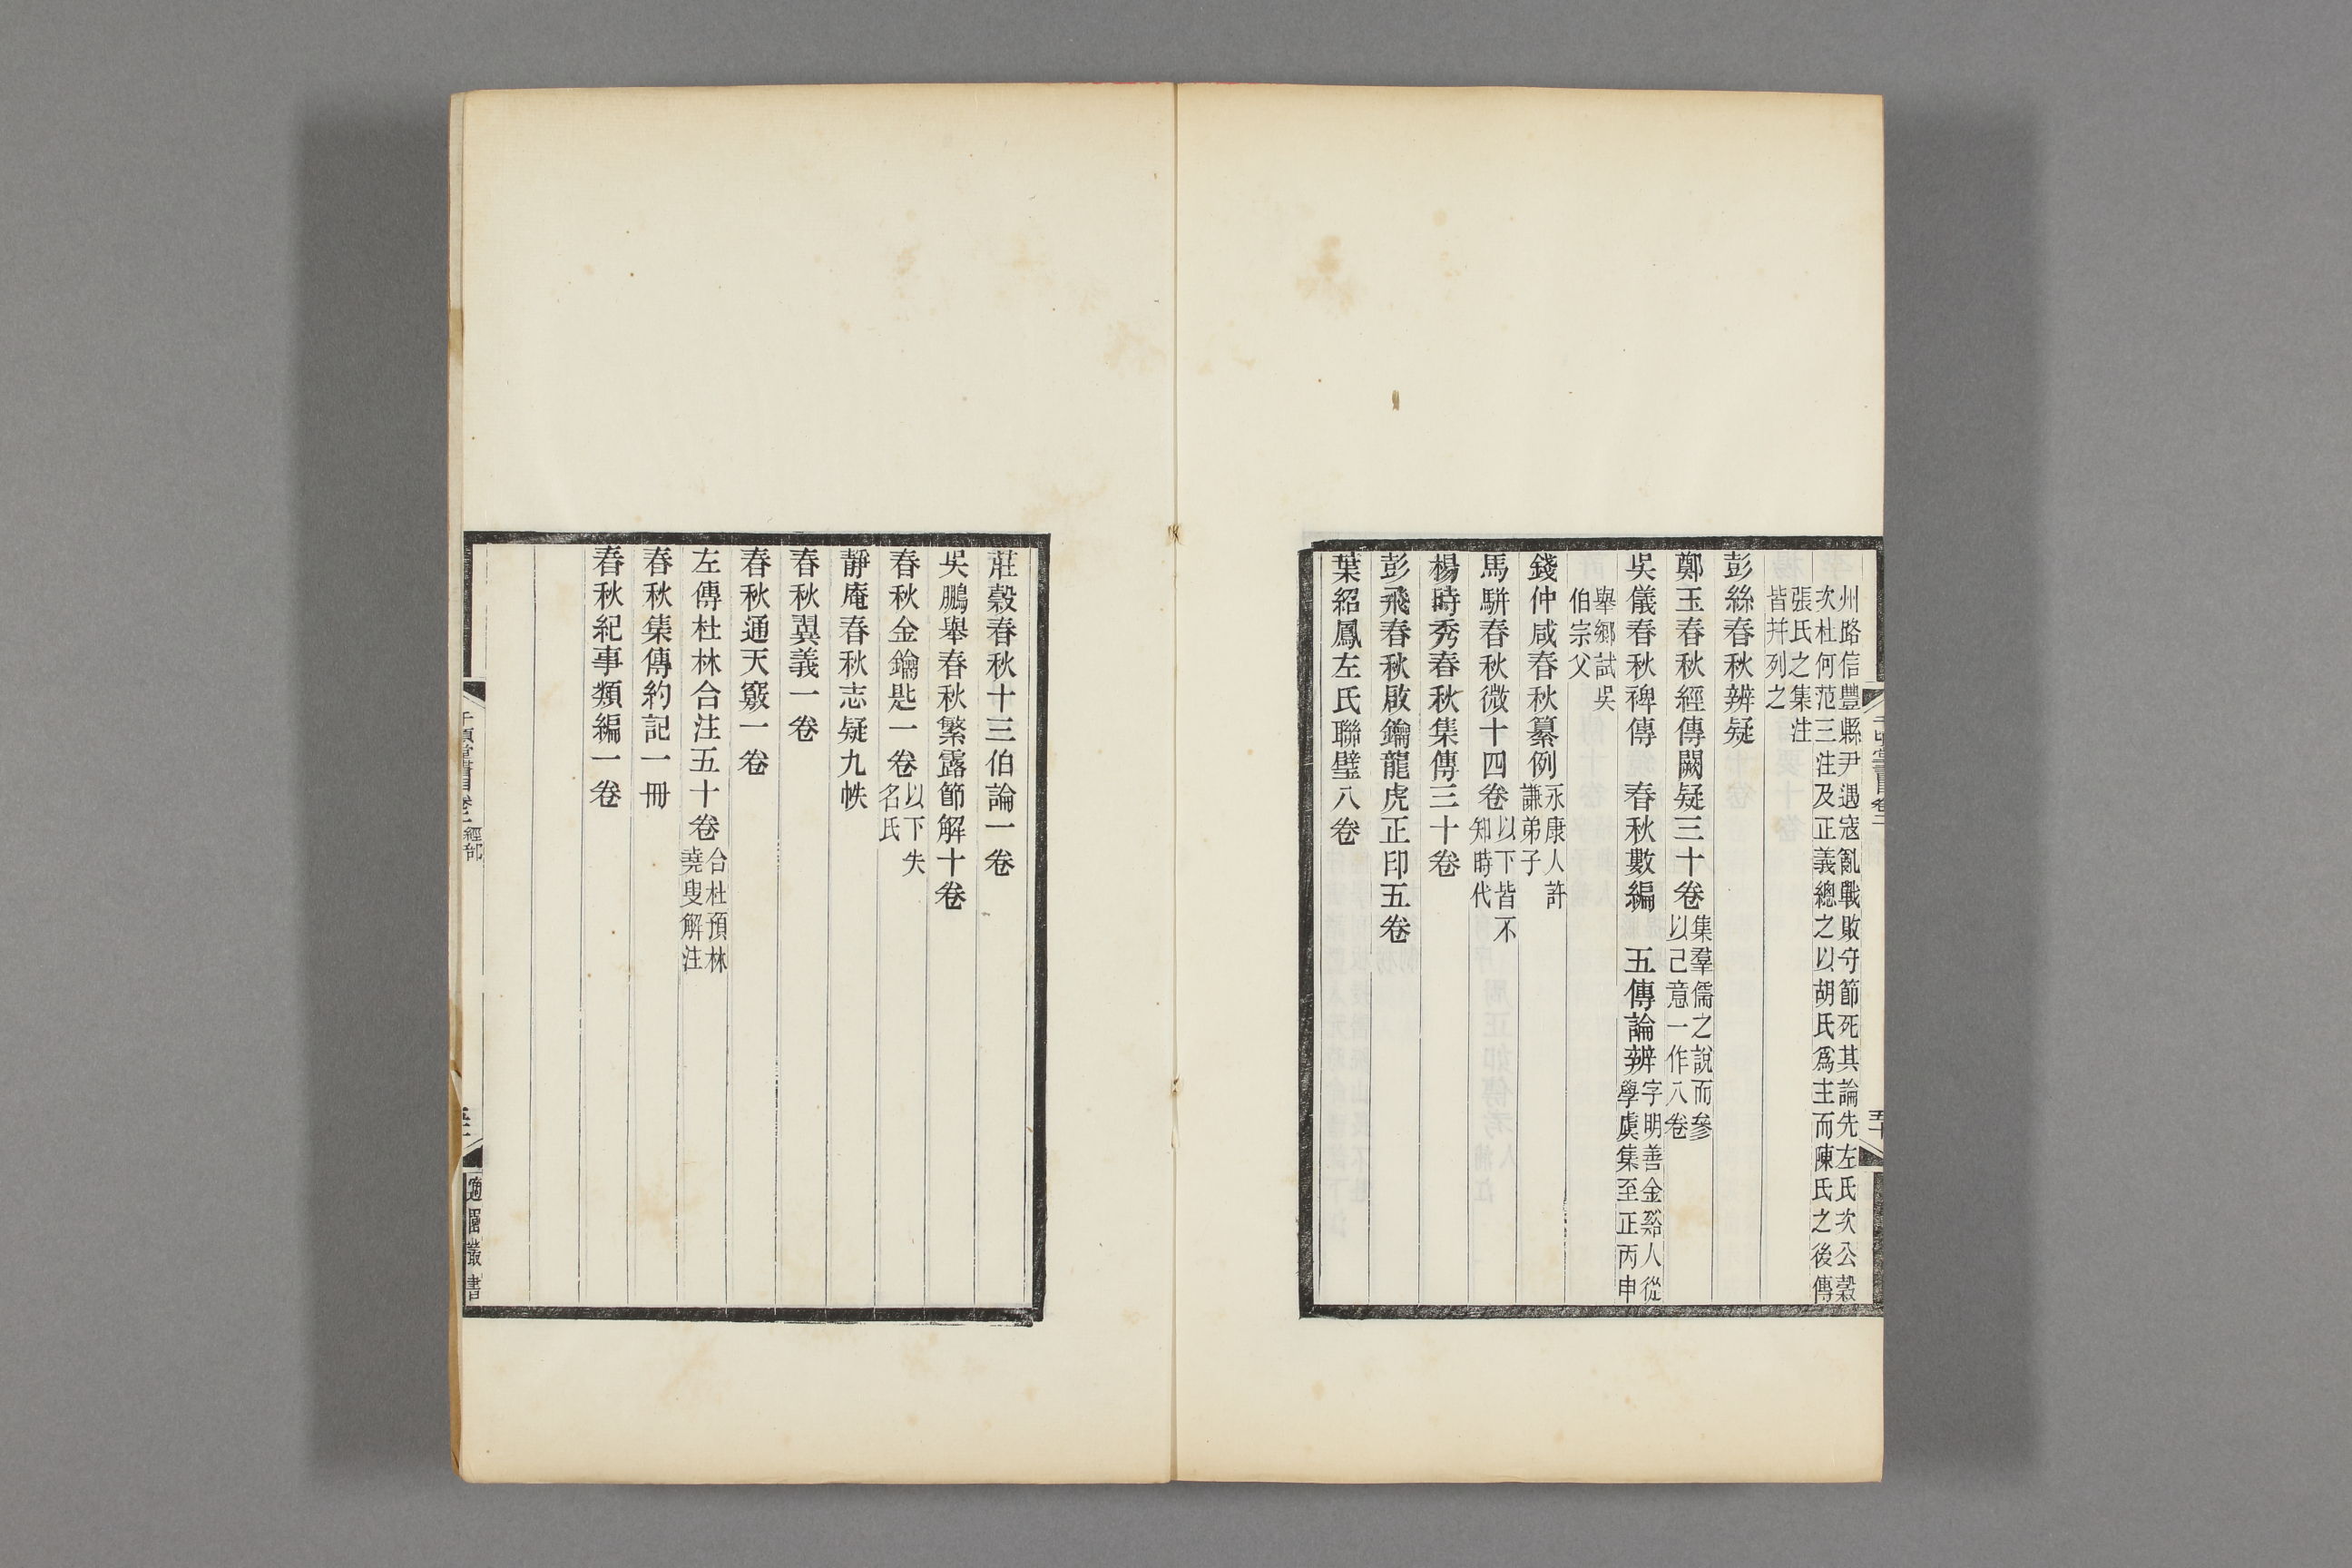 州路信豐縣尹遇寇亂戰敗守節死其論先左氏次公穀
次杜何范三注及正義總之以胡氏爲主而陳氏之後傳
張氏之集注
皆幷列之
彭絲春秋辨疑
鄭玉春秋經傳闕疑三十卷
集羣儒之說而參
以己意一作八卷
吳儀春秋稗傳　春秋數編　五傳論辨
字明善金谿人從
學虞集至正丙申
舉鄉試吳
伯宗父
錢仲咸春秋纂例
永康人許
謙弟子
馬駢春秋微十四卷
以下皆不
知時代
楊時秀春秋集傳三十卷
彭飛春秋啟鑰龍虎正印五卷
葉紹鳳左氏聯璧八卷
莊穀春秋十三伯論一卷
吳鵬舉春秋繁露節解十卷
春秋金鑰匙一卷
以下失
名氏
靜庵春秋志疑九帙
春秋翼義一卷
春秋通天竅一卷
左傳杜林合注五十卷
合杜預林
堯叟解注
春秋集傳約記一冊
春秋紀事類編一卷
千頃堂書目卷二
經部
適園叢書